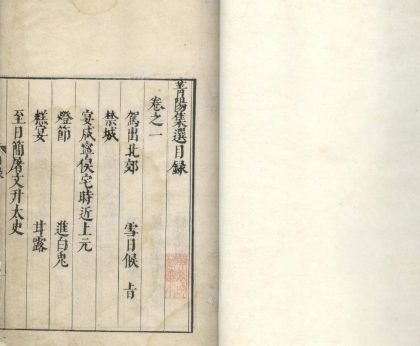 陽集選目錄
卷之一
駕出北郊 雪日候 旨
禁城
宴咸寧侯宅時近上元
燈節 進白兔
糕宴 甘露
至日簡屠文升太史